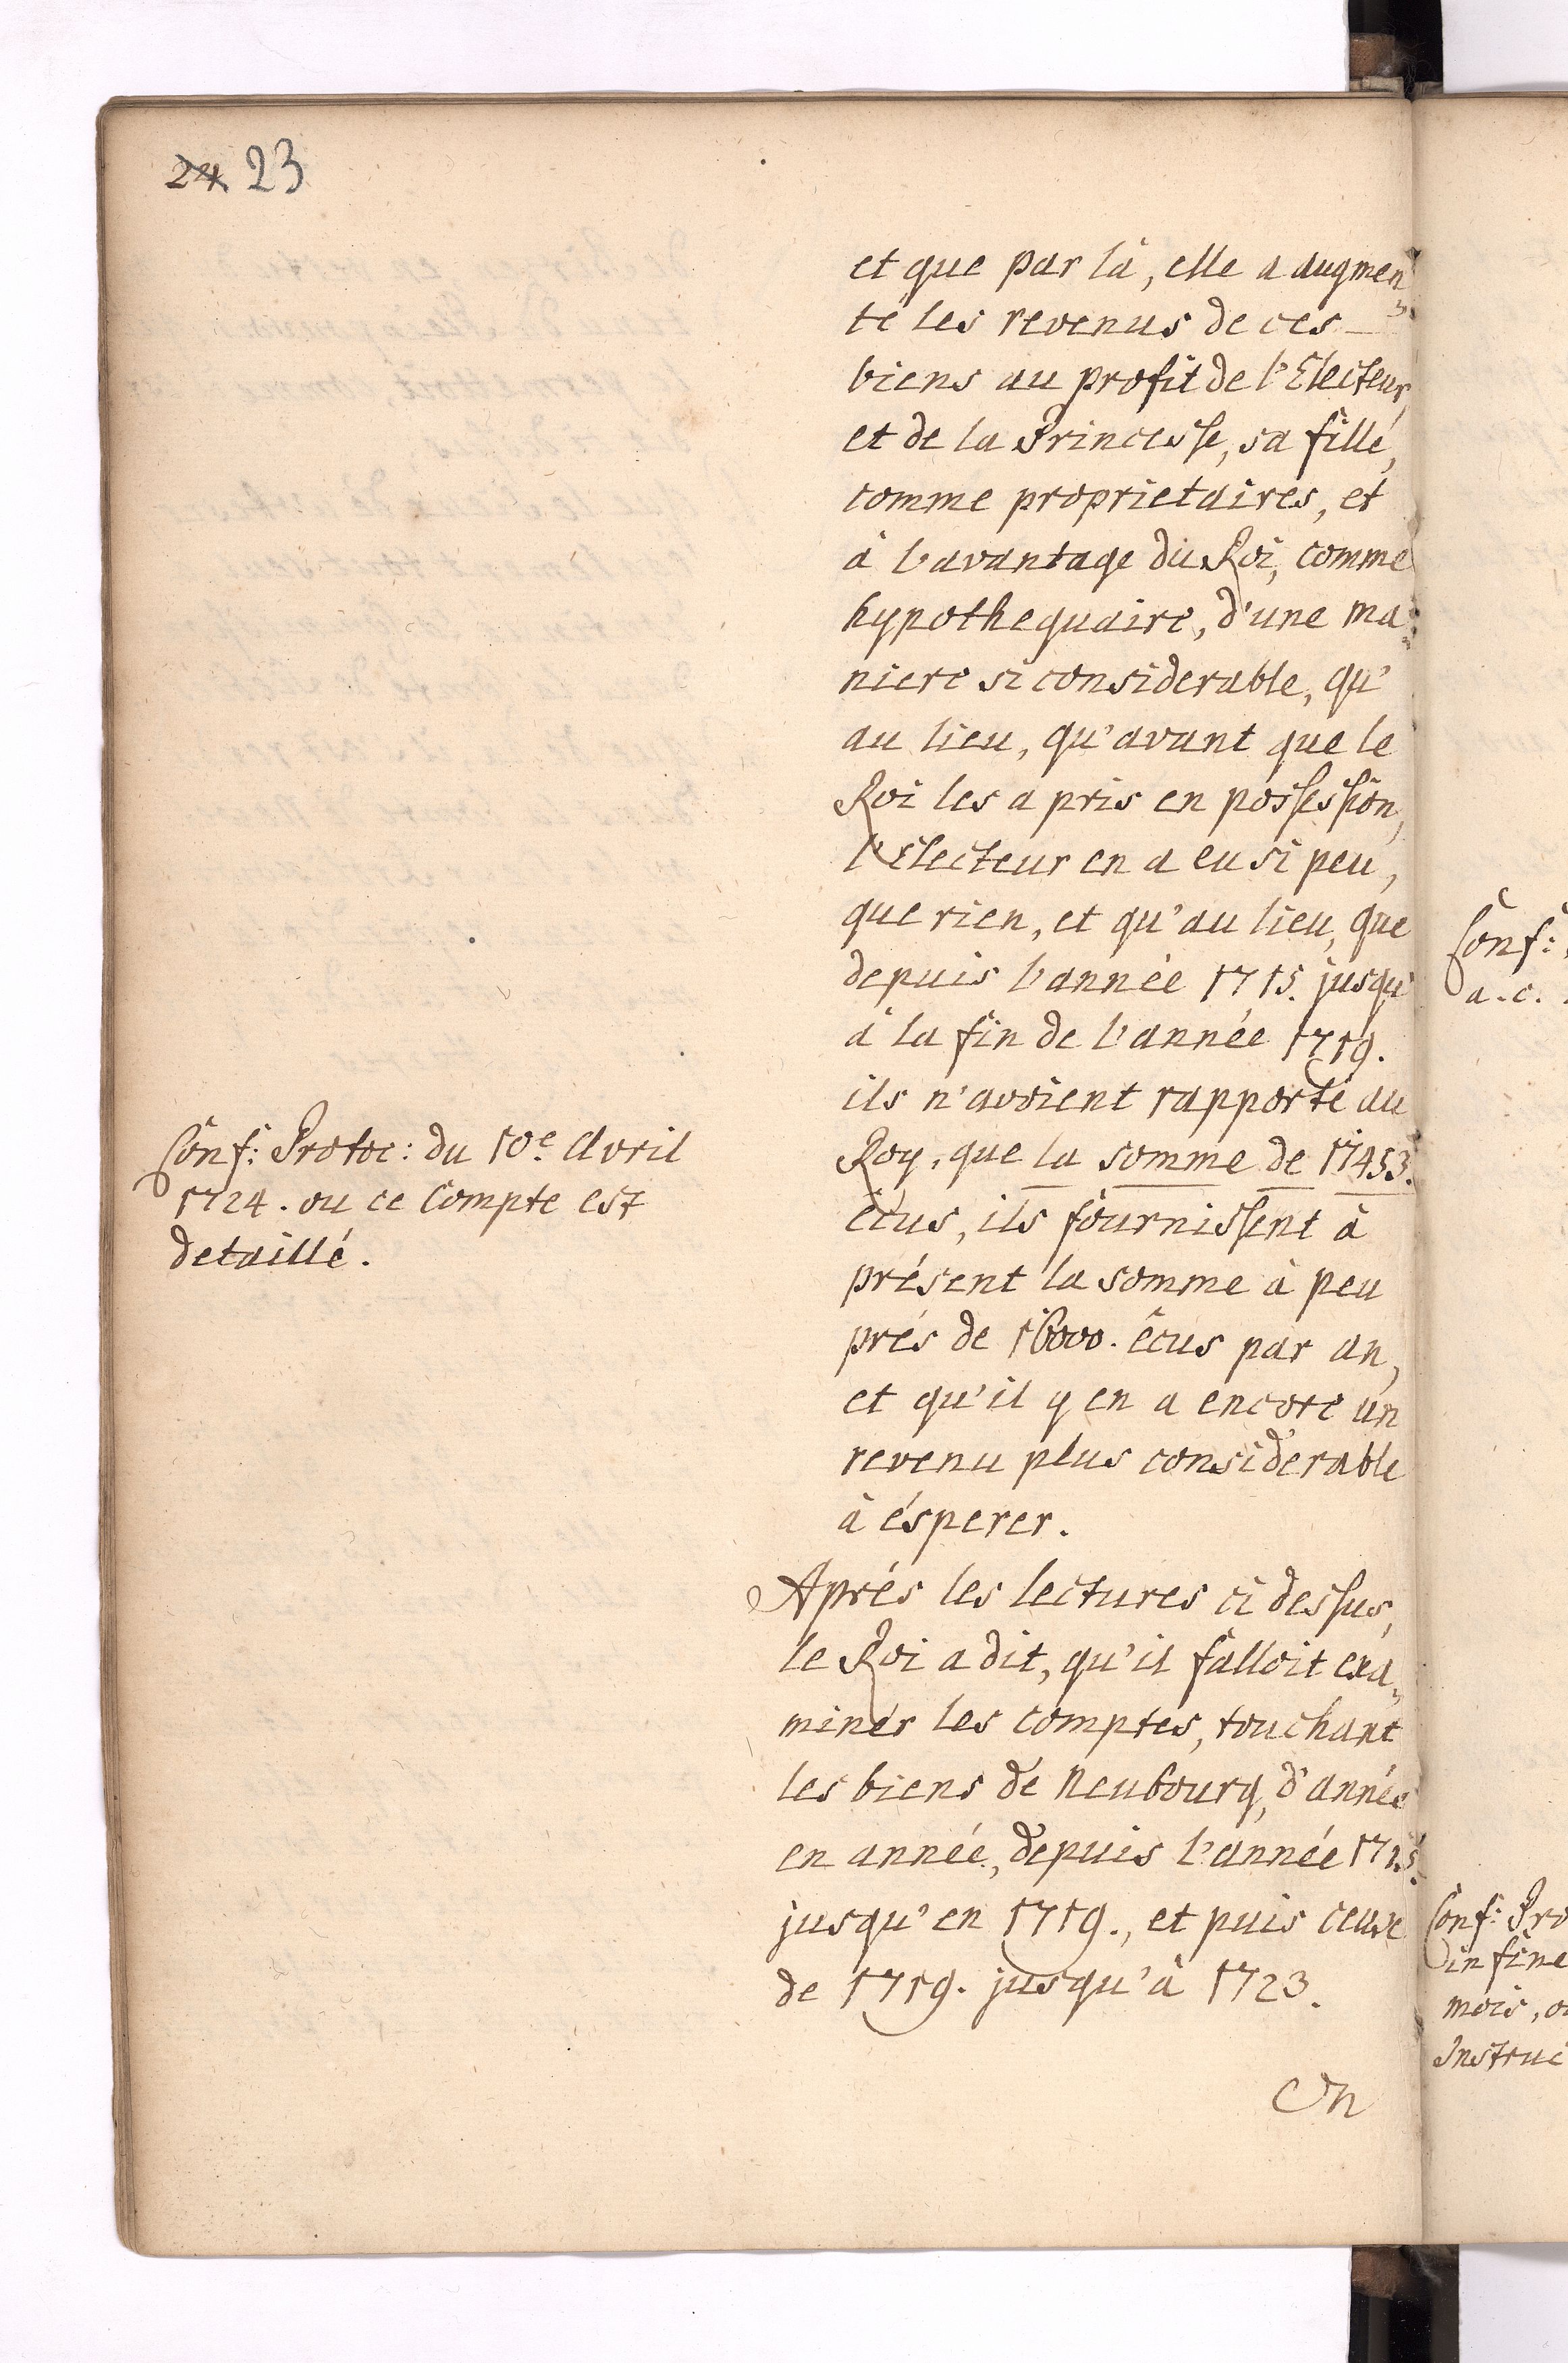 24 23
et que par là, elle a augmen
té les revenus de ces
biens au profit de l'Electeur,
et de la Princesse, sa fille,
comme proprietaires, et
à l'avantage du Roi, comme
hypothequaire, d'une ma
niere si considerable, qu'
au lieu, qu'avant que le
Roi les a pris en possession,
l'Electeur en a eu si peu,
que rien, et qu'au lieu, que
depuis l'année 1715. jusqu'
à la fin de l'année 1719.
ils n'avoient rapporté au
Roy, que la somme de 17453.
écus, ils fournissent à
présent la somme à peu
prés de 16000. écus par an,
et qu'il y en a encore un
revenu plus considerable
à ésperer.
Conf: Protoc: du 10e. Avril
1724. ou ce Compte est
detaillé.
Aprés les lectures ci dessus,
le Roi a dit, qu'il falloit exa
miner les comptes, touchant
les biens de Neubourg, d'année
en année, depuis l'année 1715.
jusqu'en 1719., et puis ceuxe
de 1719. jusqu'à 1723.
On
Conf:
a. c.
Conf: Pro
in fine
mois, o
Instruc